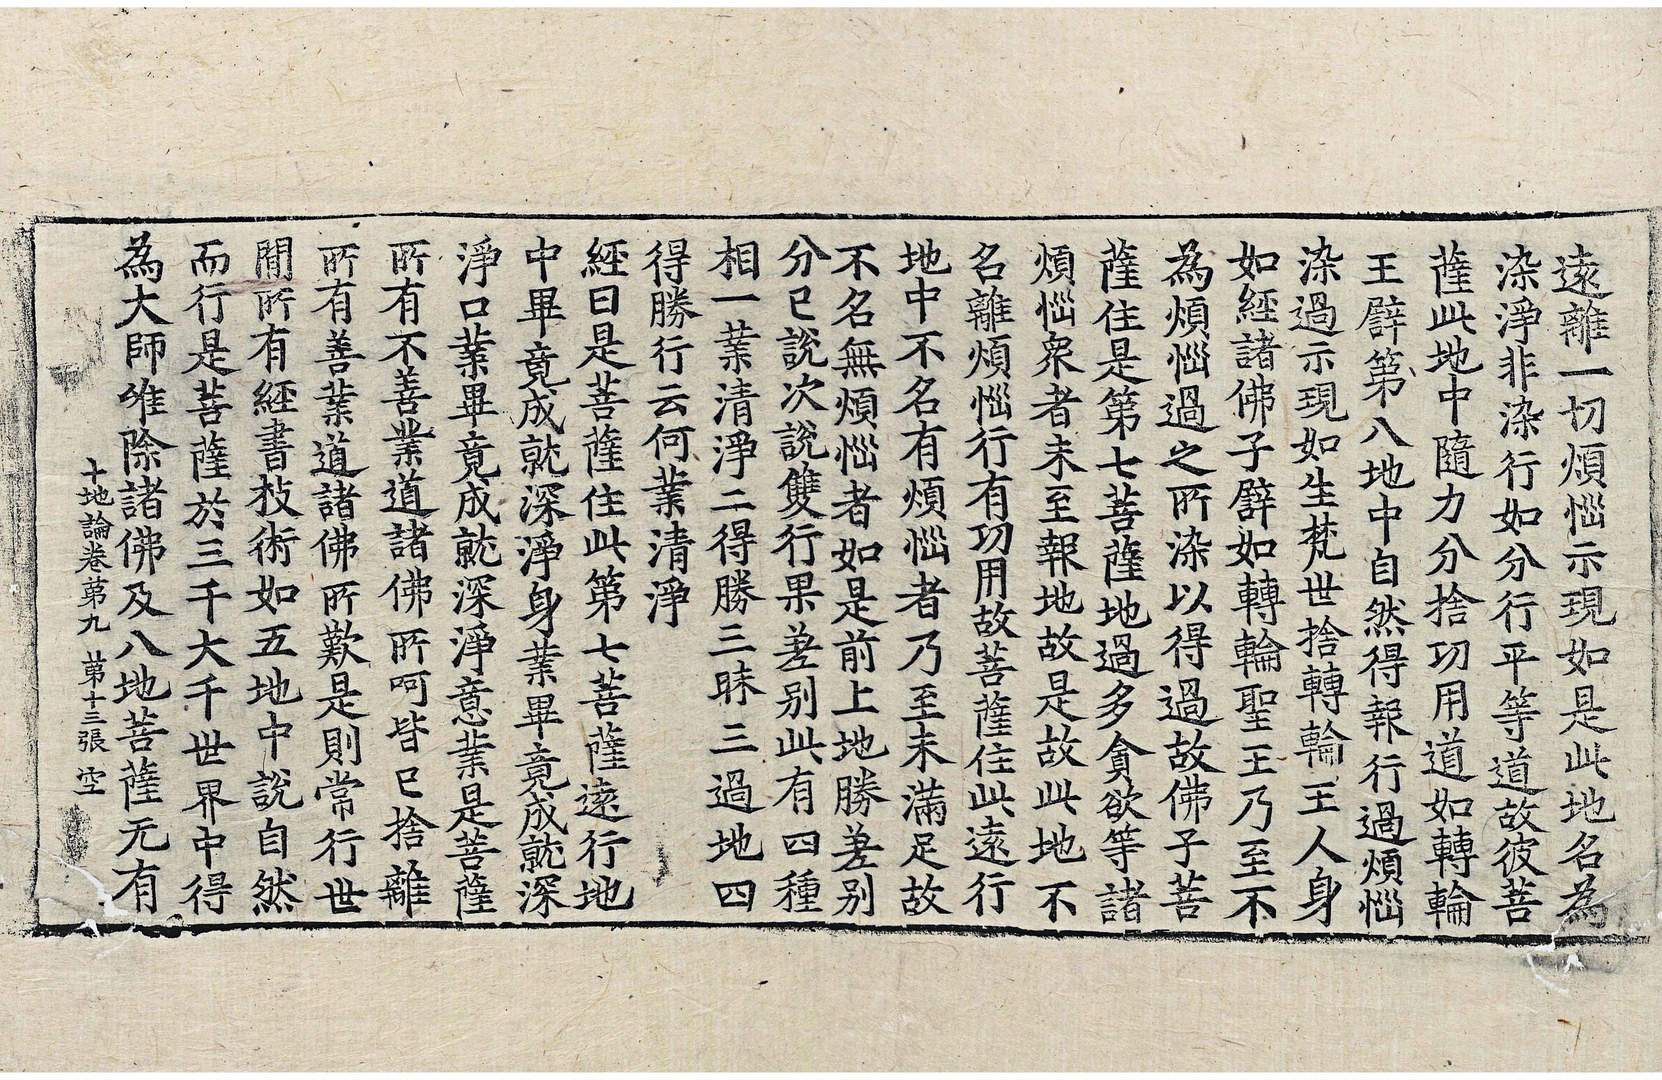 遠離一切煩惱示現如是此地名為
染淨非染行如分行平等道故彼菩
薩此地中隨力分捨功用道如轉輪
王譬第八地中自然得報行過煩惱
染過示現如生梵世捨轉輪王人身
如經諸佛子譬如轉輪聖王乃至不
為煩惱過之所染以得過故佛子菩
薩住是第七菩薩地過多貪欲等諸
煩惱眾者未至報地故是故此地不
名離煩惱行有功用故菩薩住此遠行
地中不名有煩惱者乃至未滿足故
不名無煩惱者如是前上地勝差別
分已說次說雙行果差別此有四種
相一業清淨二得勝三昧三過地四
得勝行云何業清淨
經曰是菩薩住此第七菩薩遠行地
中畢竟成就深淨身業畢竟成就深
淨口業畢竟成就深淨意業是菩薩
所有不善業道諸佛所呵皆已捨離
所有善業道諸佛所歎是則常行世
間所有經書技術如五地中說自然
而行是菩薩於三千大千世界中得
為大師唯除諸佛及八地菩薩无有
十地論卷第九　第十三張　空